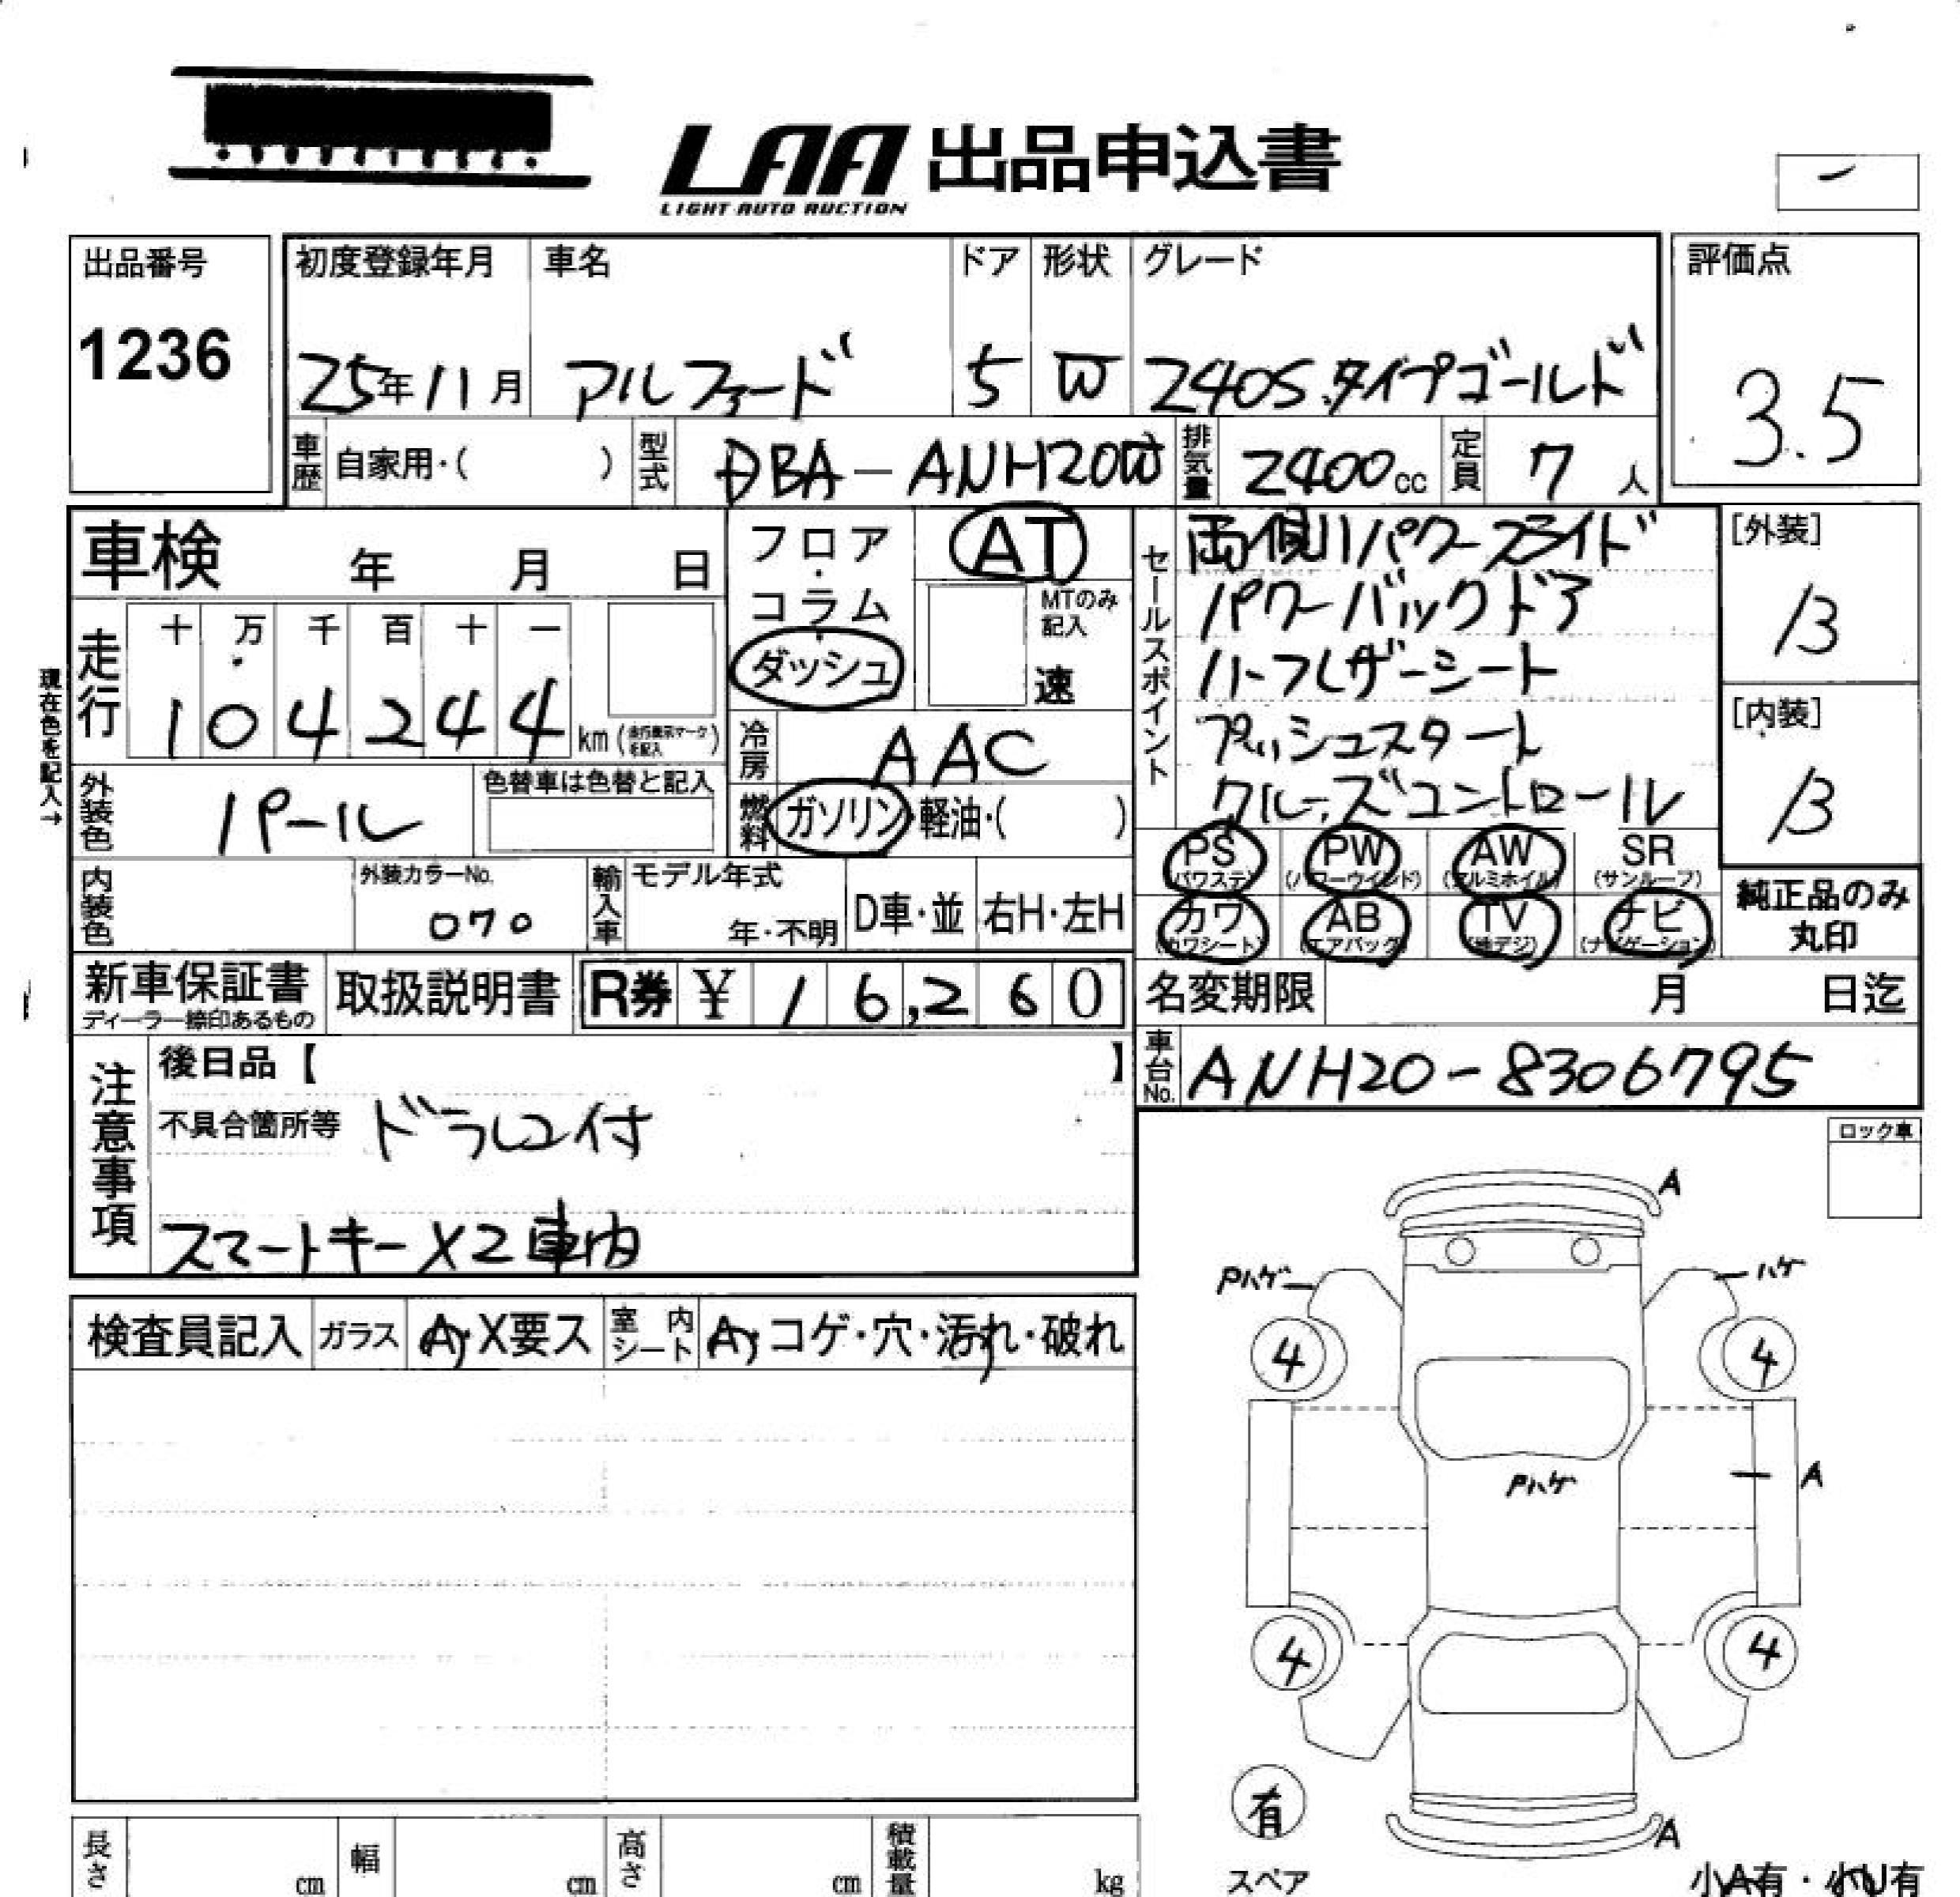 LAA 出品申込書
LIGHT AUTO AUCTION
出品番号
1236
初度登録年月 車名 ドア 形状 グレード
25年11月 アルファード 5 W 240S.タイプゴールド
評価点
3.5
車歴 自家用・( ) 型式 DBA-ANH20W 排気量 2400cc 定員 7人
車検 年 月 日
フロア・コラム・ダッシュ
AT
MTのみ記入
速
走行 十 万 千 百 十 一
104244 km (走行表示マークを記入)
現在色を記入→
冷房 AAC
外装色 パール 色替車は色替と記入
燃料 ガソリン・軽油・( )
内装色 外装カラーNo. 070
輸入車 モデル年式 年・不明 D車・並 右H・左H
セールスポイント
両側パワースライド
パワーバックドア
ハーフレザーシート
プッシュスタート
クルーズコントロール
[外装]
B
[内装]
B
PS (パワステ) PW (パワーウインド) AW (アルミホイル) SR (サンルーフ)
カワ (カワシート) AB (エアバッグ) TV (地デジ) ナビ (ナビゲーション)
純正品のみ丸印
新車保証書 ディーラー捺印あるもの 取扱説明書 R券 ¥ 16,260
名変期限 月 日迄
車台No. ANH20-8306795
注意事項
後日品【 】
不具合箇所等 ドラレコ付
スマートキーX2車内
ロック車
検査員記入 ガラス A・X要ス 室内シート A・コゲ・穴・汚れ・破れ
A
Pハゲ ハゲ
4 4
Pハゲ
A
4 4
有
スペア
A
小A有・小U有
長さ cm 幅 cm 高さ cm 積載量 kg